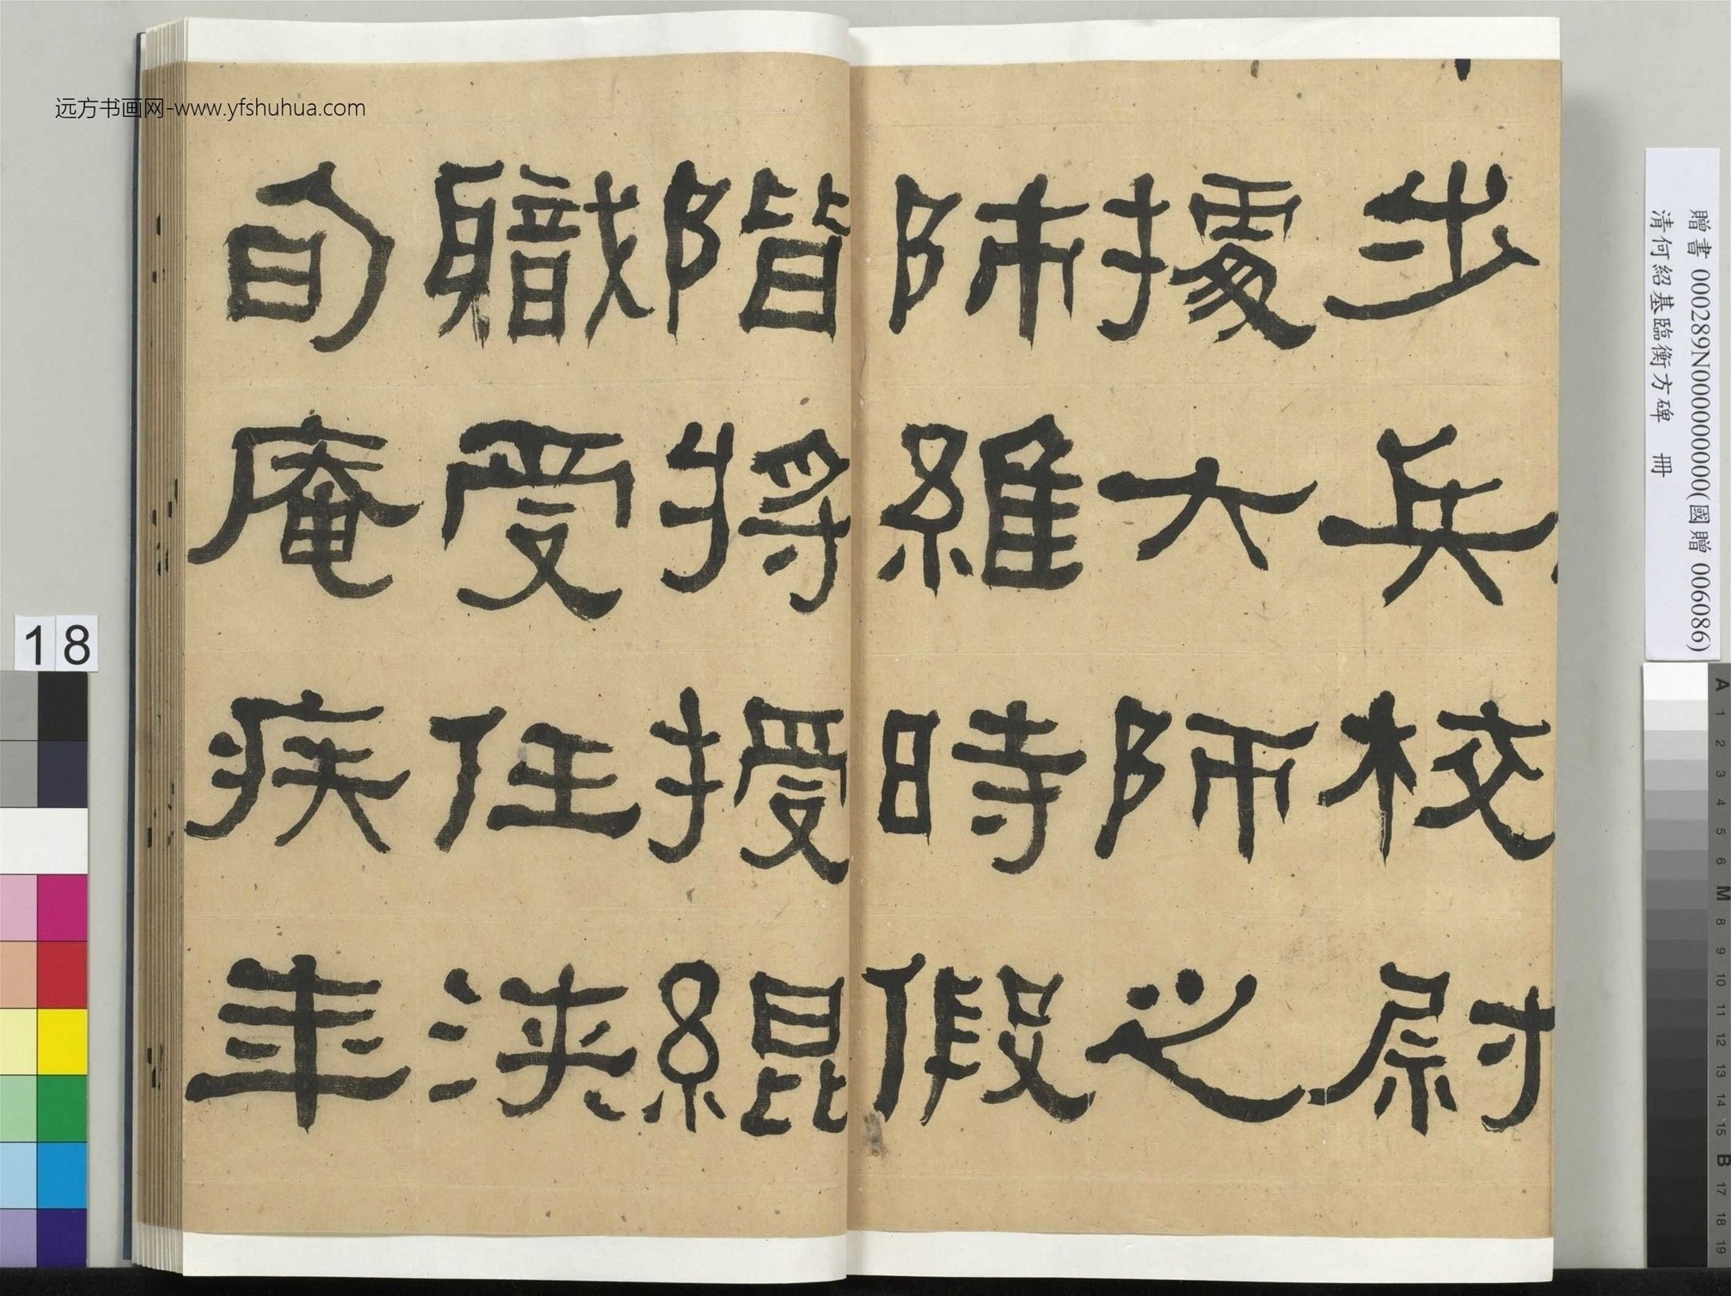 步兵校尉
據六師之
帥維時假
階將授緄
職受任浹
旬庵疾年
远方书画网-www.yfshuhua.com
贈書 000289N000000000(國贈 006086)
清何紹基臨衡方碑 冊
18
A 1 2 3 4 5 6 M 8 9 10 11 12 13 14 15 B 17 18 19